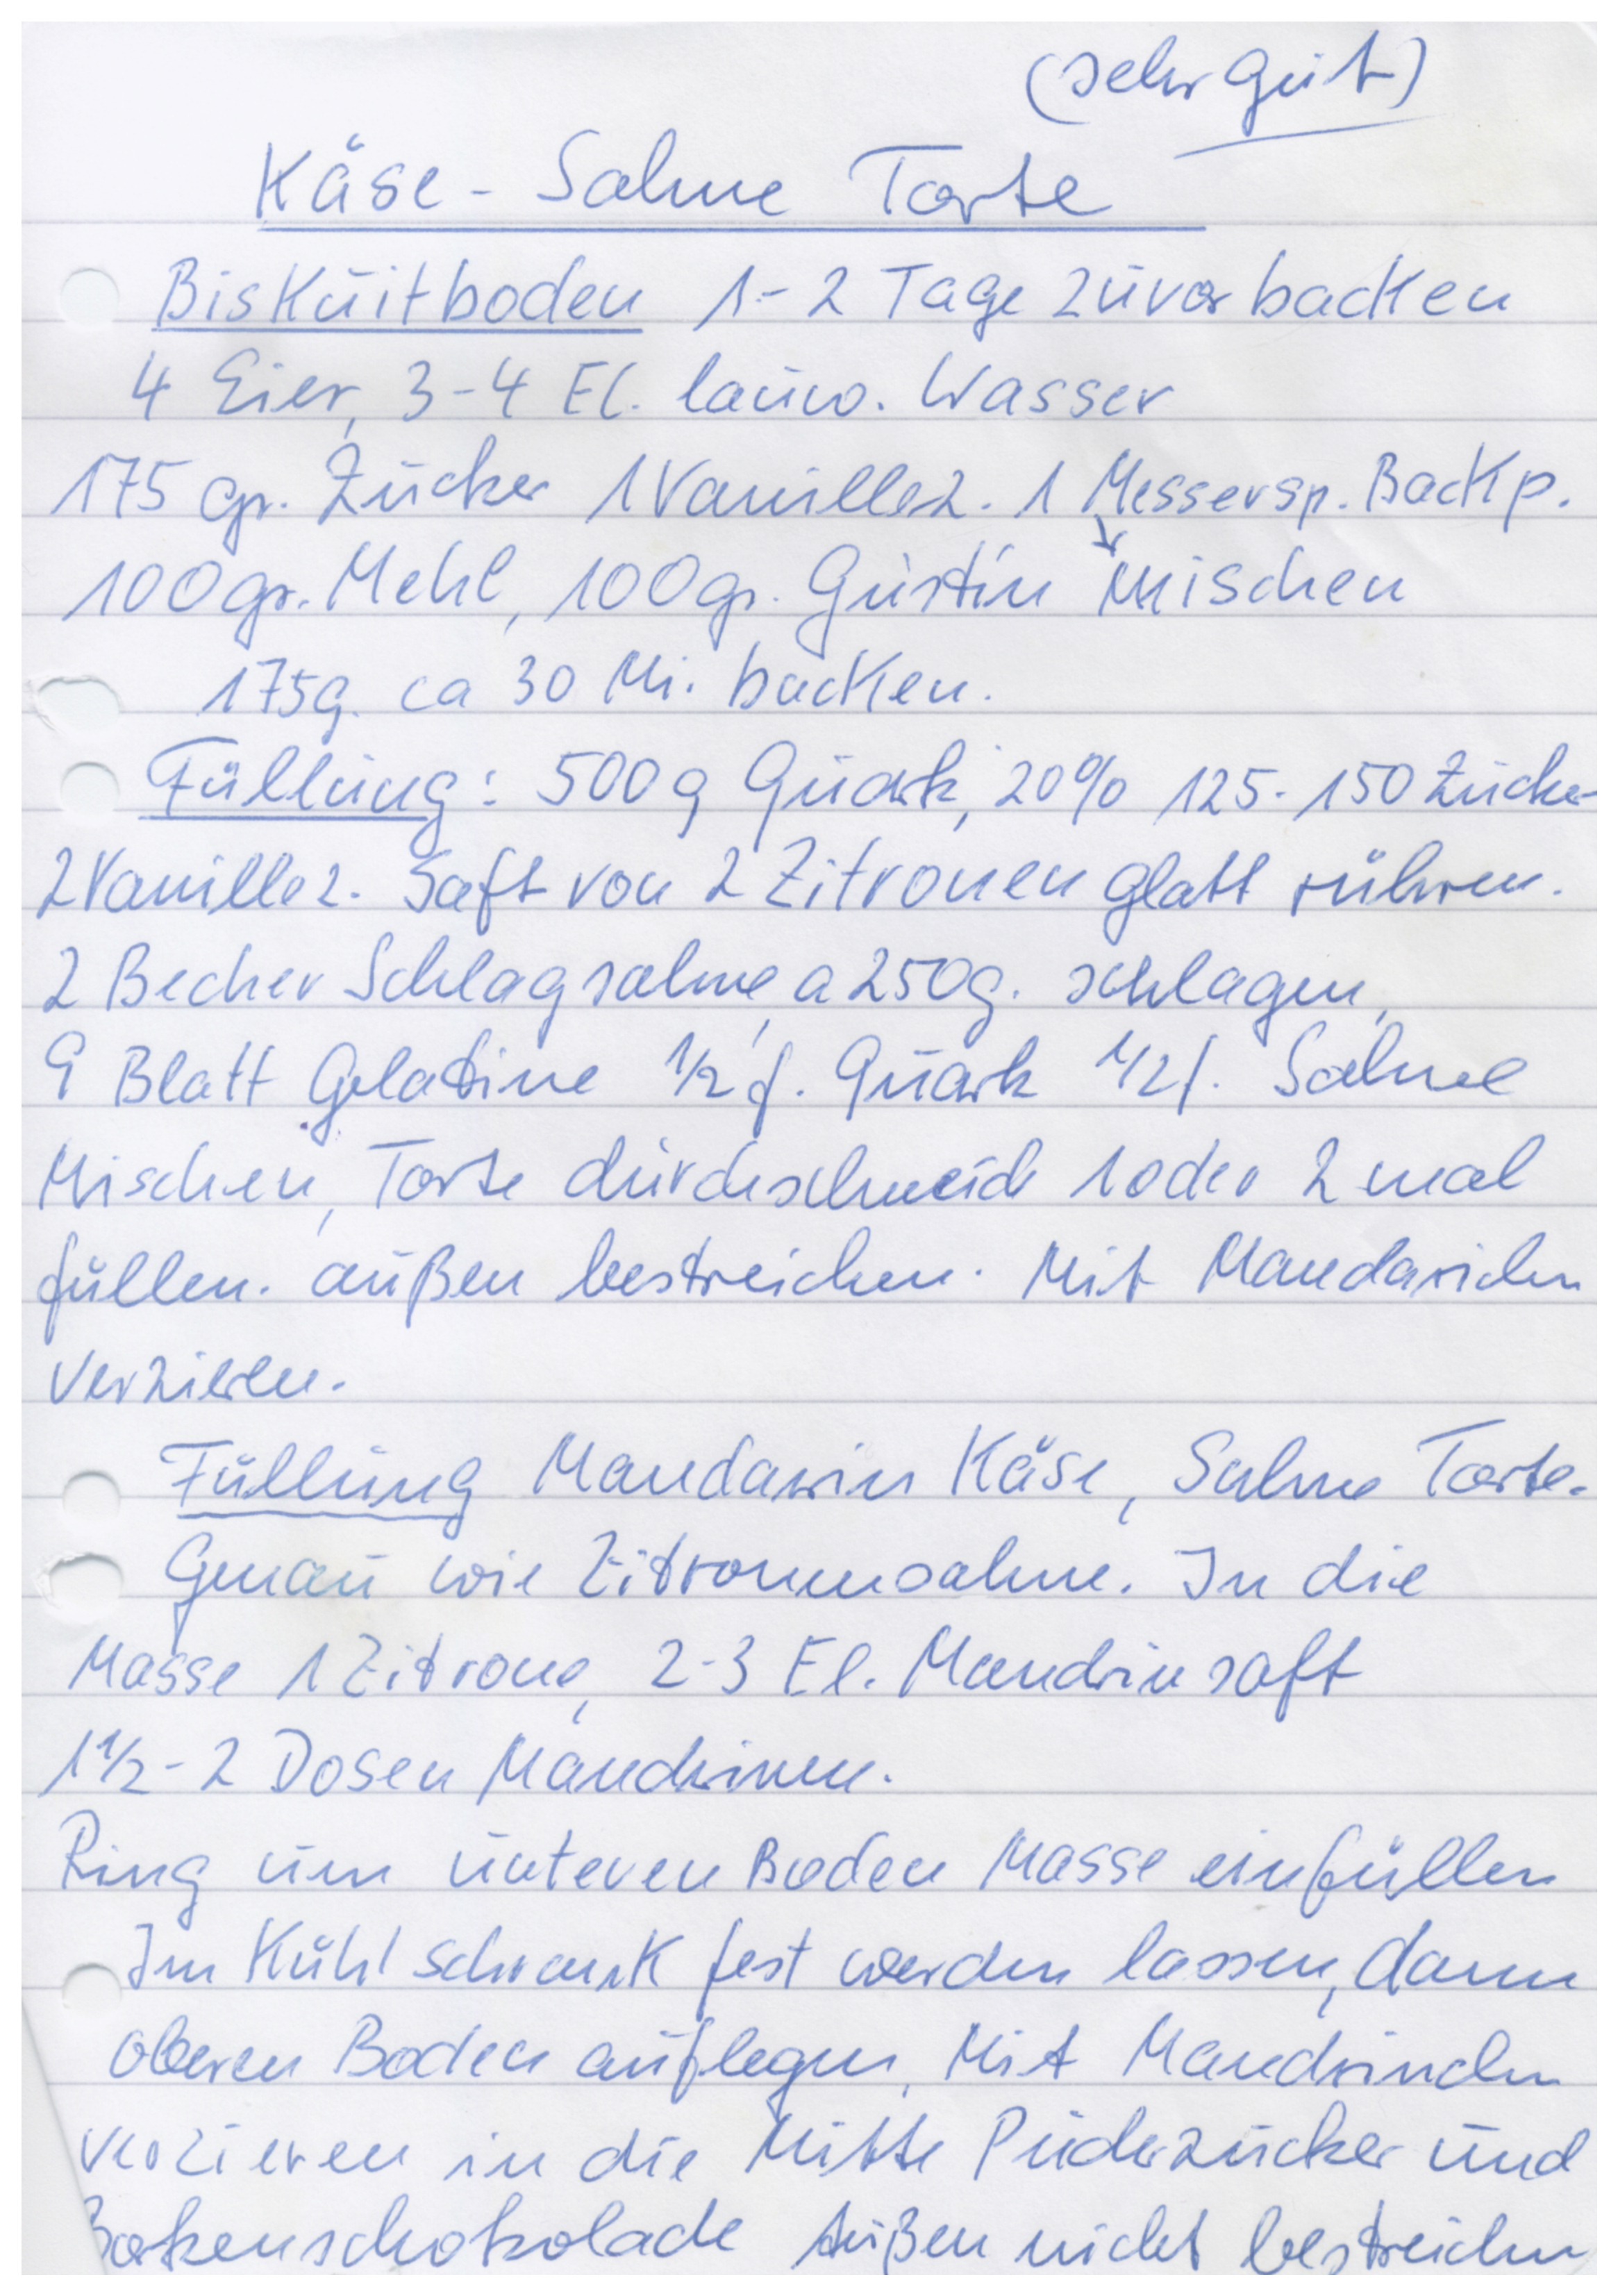 (sehr gut)
Käse - Sahne Torte
Biskuitboden 1-2 Tage zuvor backen
4 Eier, 3-4 El. lauw. Wasser
175 gr. Zucker 1 Vanillez. 1 Messersp. Backp.
100gr. Mehl, 100gr. Gustin mischen
175g. ca 30 Mi. backen.
Füllung: 500 g Quark, 20% 125-150 Zucker
2 Vanillez. Saft von 2 Zitronen glatt rühren.
2 Becher Schlagsahne, a 250g. schlagen,
9 Blatt Gelatine 1/2 f. Quark 1/2 f. Sahne
Mischen, Torte durchschneid 1 oder 2 mal
füllen. außen bestreichen. Mit Mandarichen
verzieren.
Füllung Mandarin Käse, Sahne Torte.
Genau wie Zitronensahne. In die
Masse 1 Zitrone, 2-3 El. Mandrinsaft
1 1/2 - 2 Dosen Mandrinen.
Ring um unteren Boden Masse einfüllen
Im Kühlschrank fest werden lassen, dann
oberen Boden auflegen, Mit Mandrinchen
verzieren in die Mitte Puderzucker und
Borkenschokolade Außen nicht bestreichen